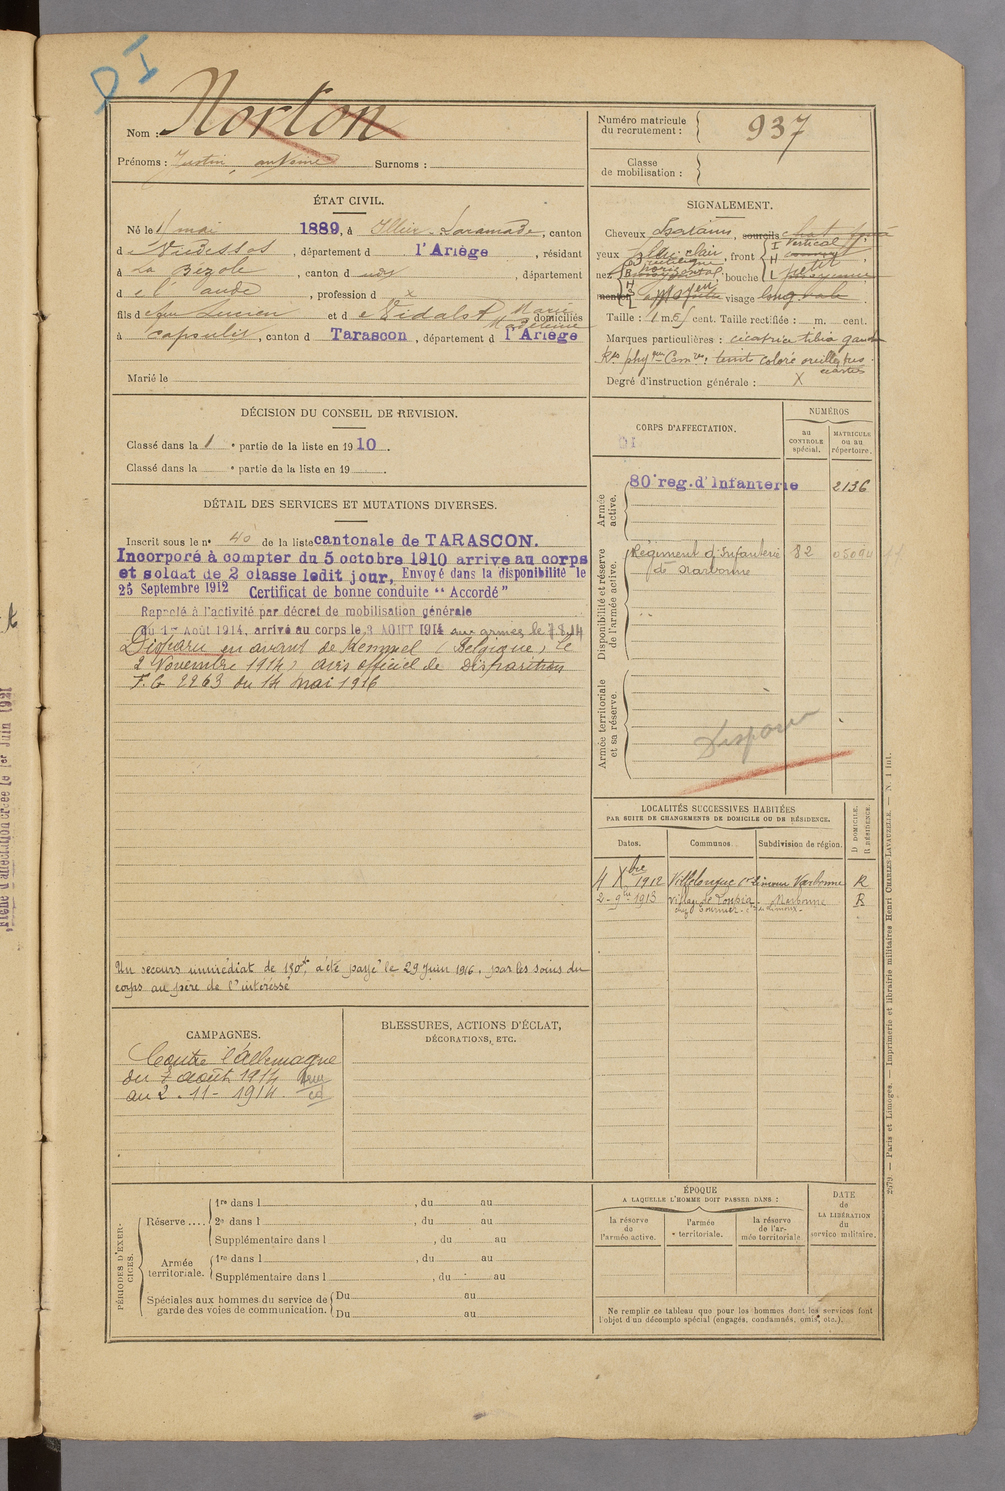 DI
Nom : Norton
Prénoms : Justin, antoine Surnoms :
Numéro matricule
du recrutement : 937
Classe
de mobilisation :
ÉTAT CIVIL.
Né le 11 mai 1889, à Illier-Laramade, canton
d e Vicdessos, département d l'Ariège, résidant
à La Bezole, canton d , département
d e l'aude, profession d x
fils d e feu Lucien et d e Vidal Marie Madeleine domiciliés
à Capoulet, canton d Tarascon, département d l'Ariège
Marié le
SIGNALEMENT.
Cheveux chatains, sourcils
yeux , front Vertical
nez , bouche petite
menton visage long
Taille : 1 m. cent. Taille rectifiée : m. cent.
Marques particulières : cicatrice tibia gauche
teint coloré oreilles
écartées
Degré d'instruction générale : X
DÉCISION DU CONSEIL DE REVISION.
Classé dans la 1e partie de la liste en 1910.
Classé dans la e partie de la liste en 19 .
DÉTAIL DES SERVICES ET MUTATIONS DIVERSES.
Inscrit sous le n° 40 de la liste cantonale de TARASCON.
Incorporé à compter du 5 octobre 1910 arrive au corps
et soldat de 2 classe ledit jour, Envoyé dans la disponibilité le
25 Septembre 1912 Certificat de bonne conduite "Accordé"
Rappelé à l'activité par décret de mobilisation générale
du 1er Août 1914, arrivé au corps le 3 AOUT 1914 aux armées le 7.8.14
Disparu en avant de Kemmel (Belgique) le
2 Novembre 1914, avis officiel de Disparition
F.G 2263 du 14 mai 1916
Un secours immédiat de 150f a été payé le 29 Juin 1916, par les soins du
corps au père de l'intéressé
CORPS D'AFFECTATION.
NUMÉROS
au
CONTROLE
spécial.
MATRICULE
ou au
répertoire.
DI
Armée
active.
80e reg. d'Infanterie 2136
Disponibilité et réserve
de l'armée active.
Régiment d'Infanterie 82
de Narbonne
Armée territoriale
et sa réserve.
Disparu
LOCALITÉS SUCCESSIVES HABITÉES
PAR SUITE DE CHANGEMENTS DE DOMICILE OU DE RÉSIDENCE.
Dates. Communes. Subdivision de région. D DOMICILE. R RÉSIDENCE.
4 Xbre 1912 Villelongue Con Limoux Narbonne R
2-9bre 1913 Narbonne R
CAMPAGNES.
Contre l'Allemagne
du 7 août 1914
au 2-11-1914.
BLESSURES, ACTIONS D'ÉCLAT,
DÉCORATIONS, ETC.
PÉRIODES D'EXERCICES.
Réserve .... 1re dans l , du au
2e dans l , du au
Supplémentaire dans l , du au
Armée
territoriale. 1re dans l , du au
Supplémentaire dans l , du au
Spéciales aux hommes du service de
garde des voies de communication. Du au
Du au
ÉPOQUE
A LAQUELLE L'HOMME DOIT PASSER DANS :
la réserve
de
l'armée active.
l'armée
territoriale.
la réserve
de l'ar-
mée territoriale
DATE
de
LA LIBÉRATION
du
service militaire.
Ne remplir ce tableau que pour les hommes dont les services font
l'objet d'un décompte spécial (engagés, condamnés, omis, etc.).
2979. — Paris et Limoges. — Imprimerie et librairie militaires Henri CHARLES-LAVAUZELLE. — N. 1 int.